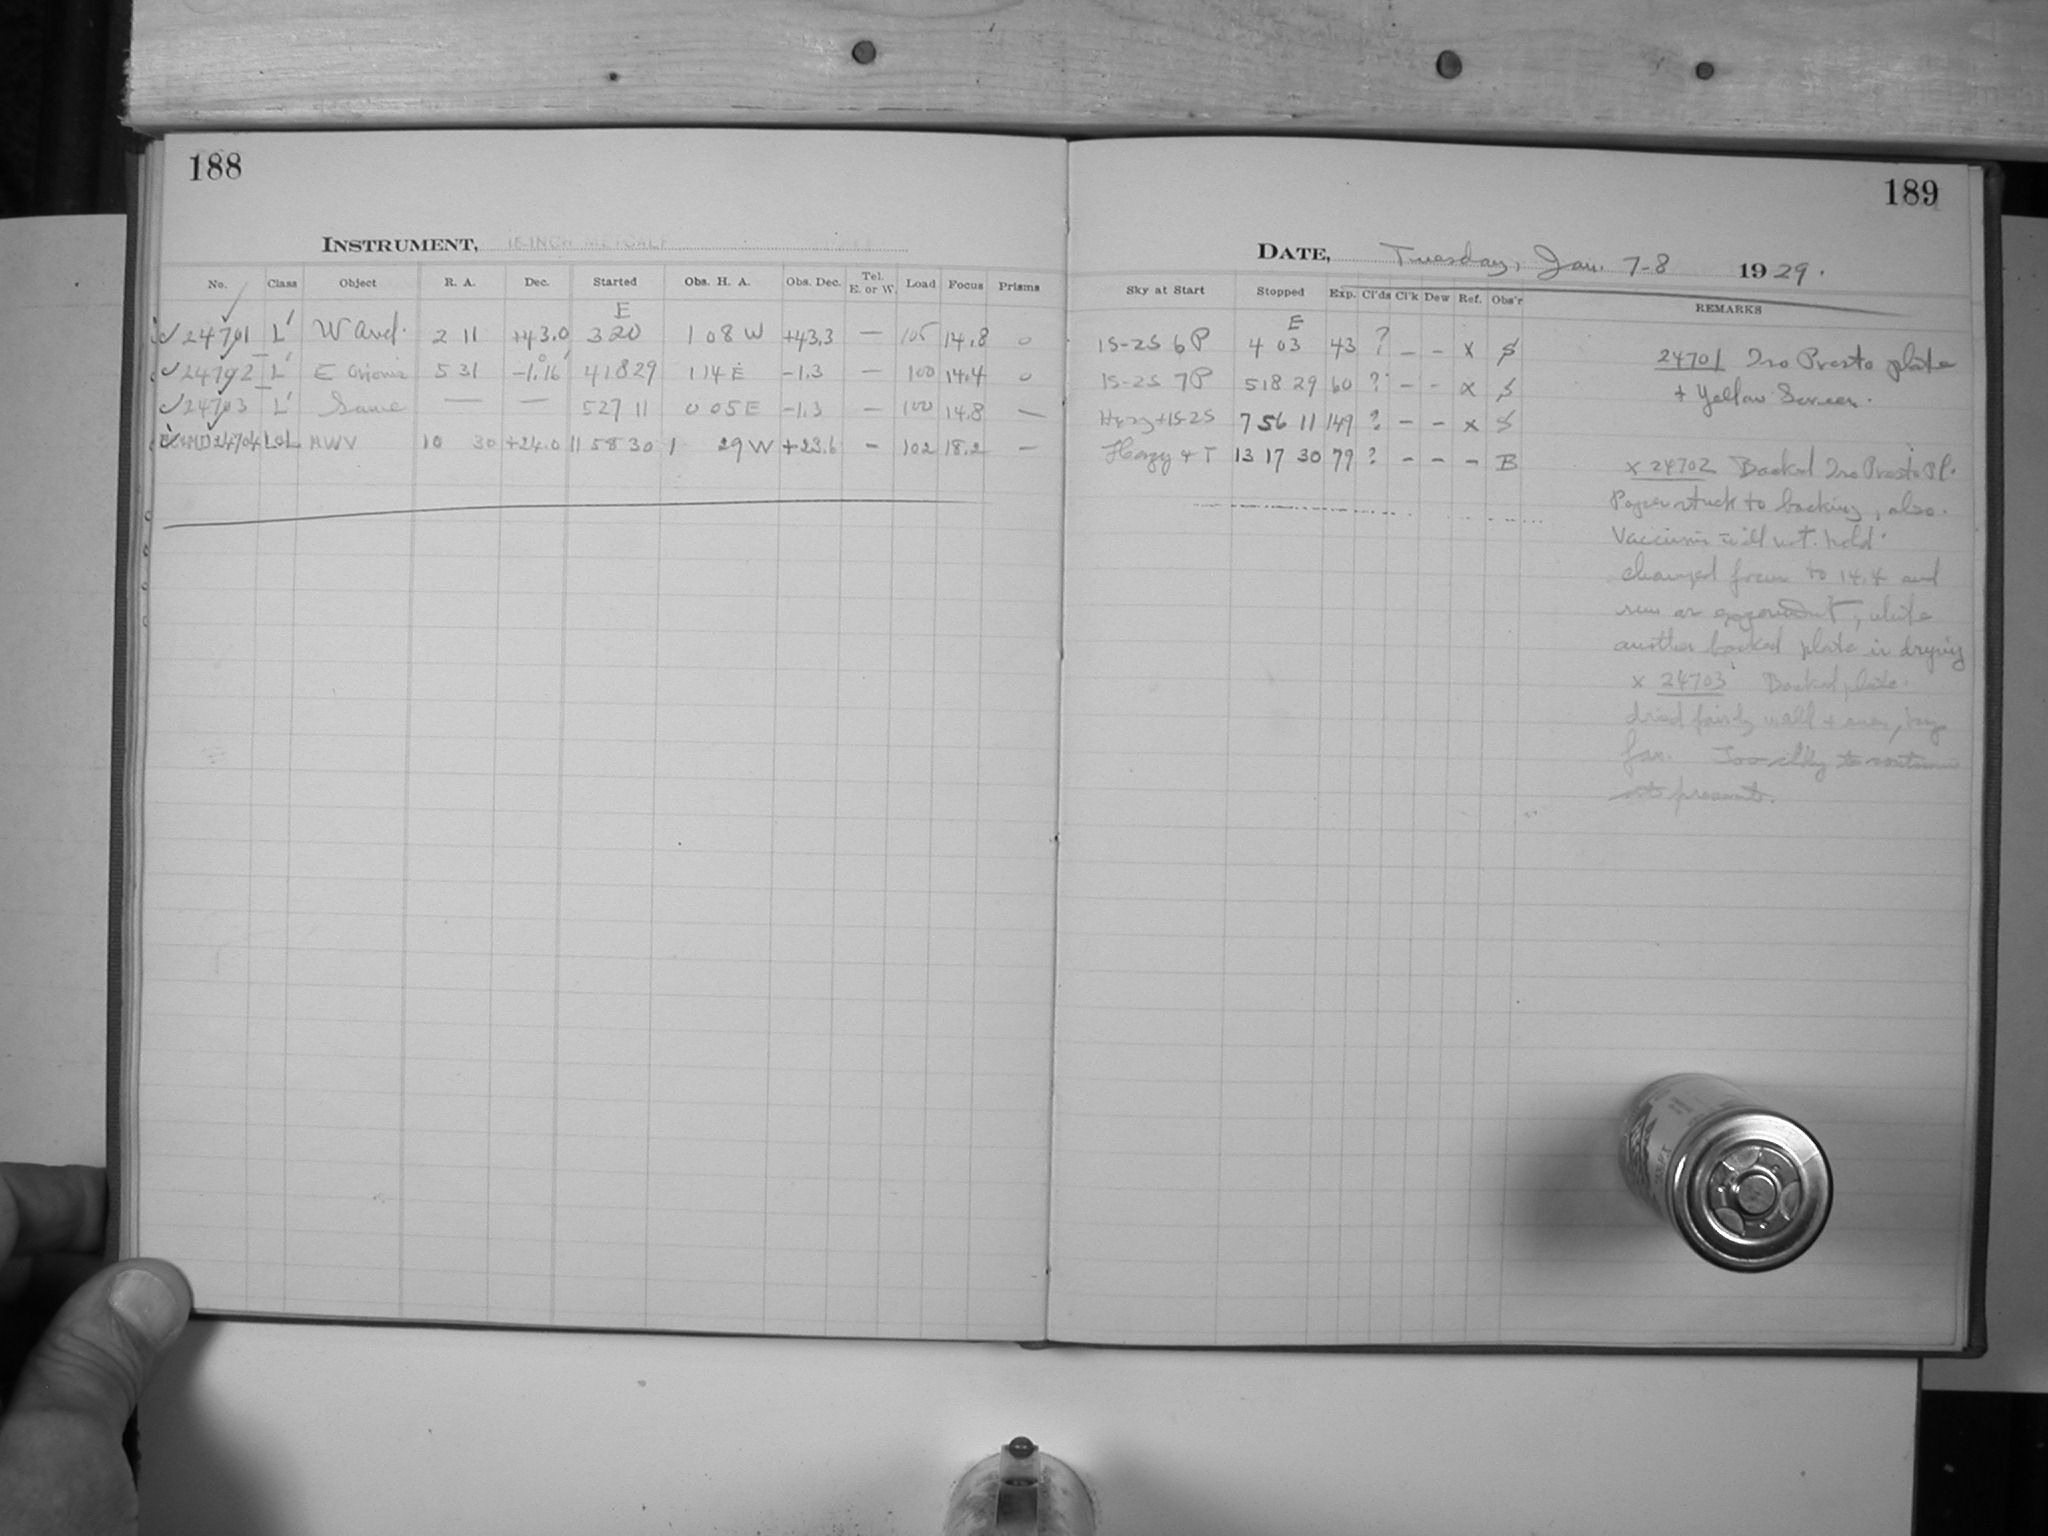 188
INSTRUMENT, 16 INCH METCALF
No. Class Object R. A. Dec. Started Obs. H. A. Obs. Dec. Tel. E. or W. Load Focus Prisms
E
✓ 24701 L' W And. 2 11 +43.0 3 20 1 08 W +43.3 — 105 14.8 o
✓ 24702 L' E Orionis 5 31 -1°.16' 4 18 29 1 14 E -1.3 — 100 14.4 o
✓ 24703 L' Same — — 5 27 11 0 05 E -1.3 — 100 14.8 —
24704 LOL MWV 10 30 +24.0 11 58 30 1 29 W +23.6 - 102 18.2 —
189
DATE, Tuesday, Jan. 7-8 1929.
Sky at Start Stopped Exp. Cl'ds Cl'k Dew Ref. Obs'r REMARKS
E
1S-2S 6P 4 03 43 ? - - x S
1S-2S 7P 5 18 29 60 ? - - x S
Hazy+1S-2S 7 56 11 149 ? - - x S
Hazy + T 13 17 30 79 ? - - - B
24701 Iso Presto plate
+ Yellow Screen.
x 24702 Backed Iso Presto Pl.
Paper stuck to backing, also
Vacuum will not hold
changed focus to 14.4 and
run as experiment, while
another backed plate is drying
x 24703 Backed plate
dried fairly well + even, by
fan. Too to continue
at present.